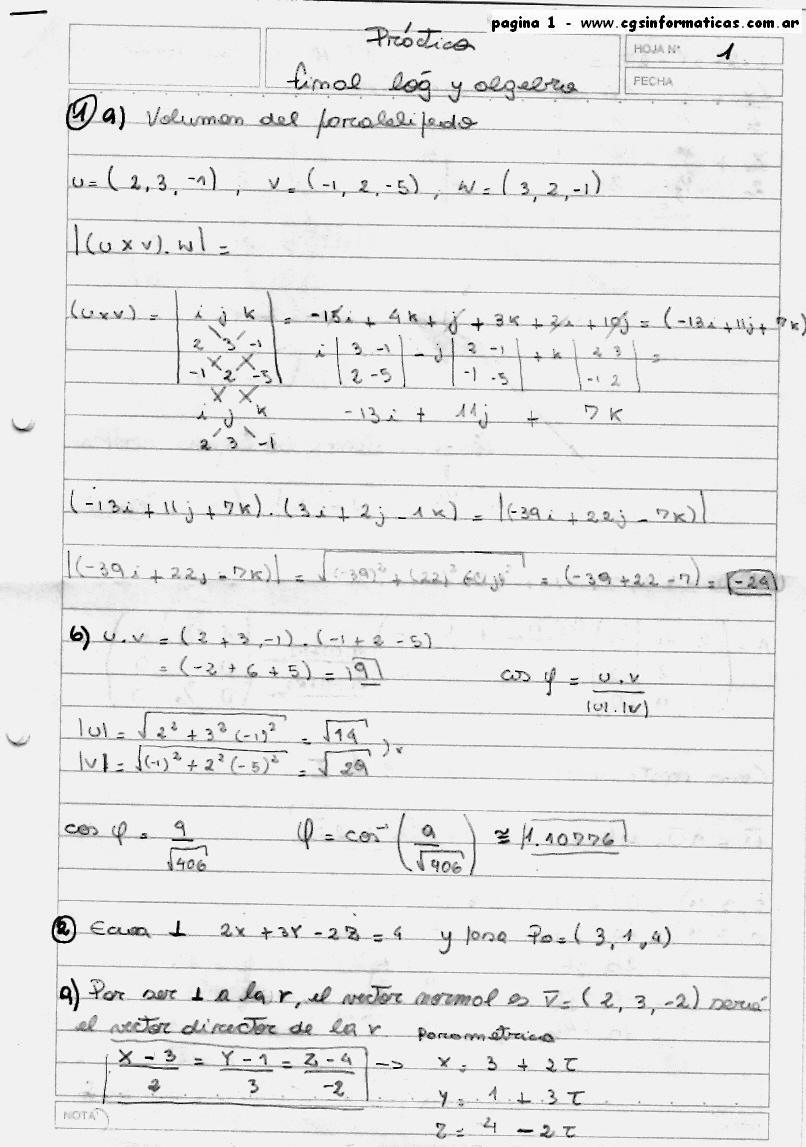 pagina 1 - www.cgsinformaticas.com.ar
Práctica
HOJA N° 1
final lóg y algebra
FECHA
① a) Volumen del paralelipedo
u = (2, 3, -1) , v = (-1, 2, -5) , w = (3, 2, -1)
|(u x v). w| =
(u x v) = | i j k | = -15i + 4k + j + 3k + 2i + 10j = (-13i + 11j + 7k)
2 3 -1 i | 3 -1 | - j | 2 -1 | + k | 2 3 | =
-1 2 -5 | 2 -5 | | -1 -5 | | -1 2 |
i j k -13i + 11j + 7k
2 3 -1
(-13i + 11j + 7k) . (3i + 2j - 1k) = |(-39i + 22j - 7k)|
|(-39i + 22j - 7k)| = √(-39)² + (22)² = (-39 + 22 - 7) = -24
b) u.v = (2 + 3, -1) . (-1 + 2 - 5)
= (-2 + 6 + 5) = 9 cos φ = u.v / |u|.|v|
|u| = √2² + 3² (-1)² = √14
|v| = √(-1)² + 2² (-5)² = √29
cos φ = 9/√406 φ = cos⁻¹ (9/√406) ≅ 1.10776
② Ecua ⊥ 2x + 3Y - 2Z = 4 y pasa Po = (3, 1, 4)
a) Por ser ⊥ a la r, el vector normal es V = (2, 3, -2) seria
el vector director de la r parametrica
X - 3 / 2 = Y - 1 / 3 = Z - 4 / -2 → x = 3 + 2τ
y = 1 + 3τ
NOTA
z = 4 - 2τ